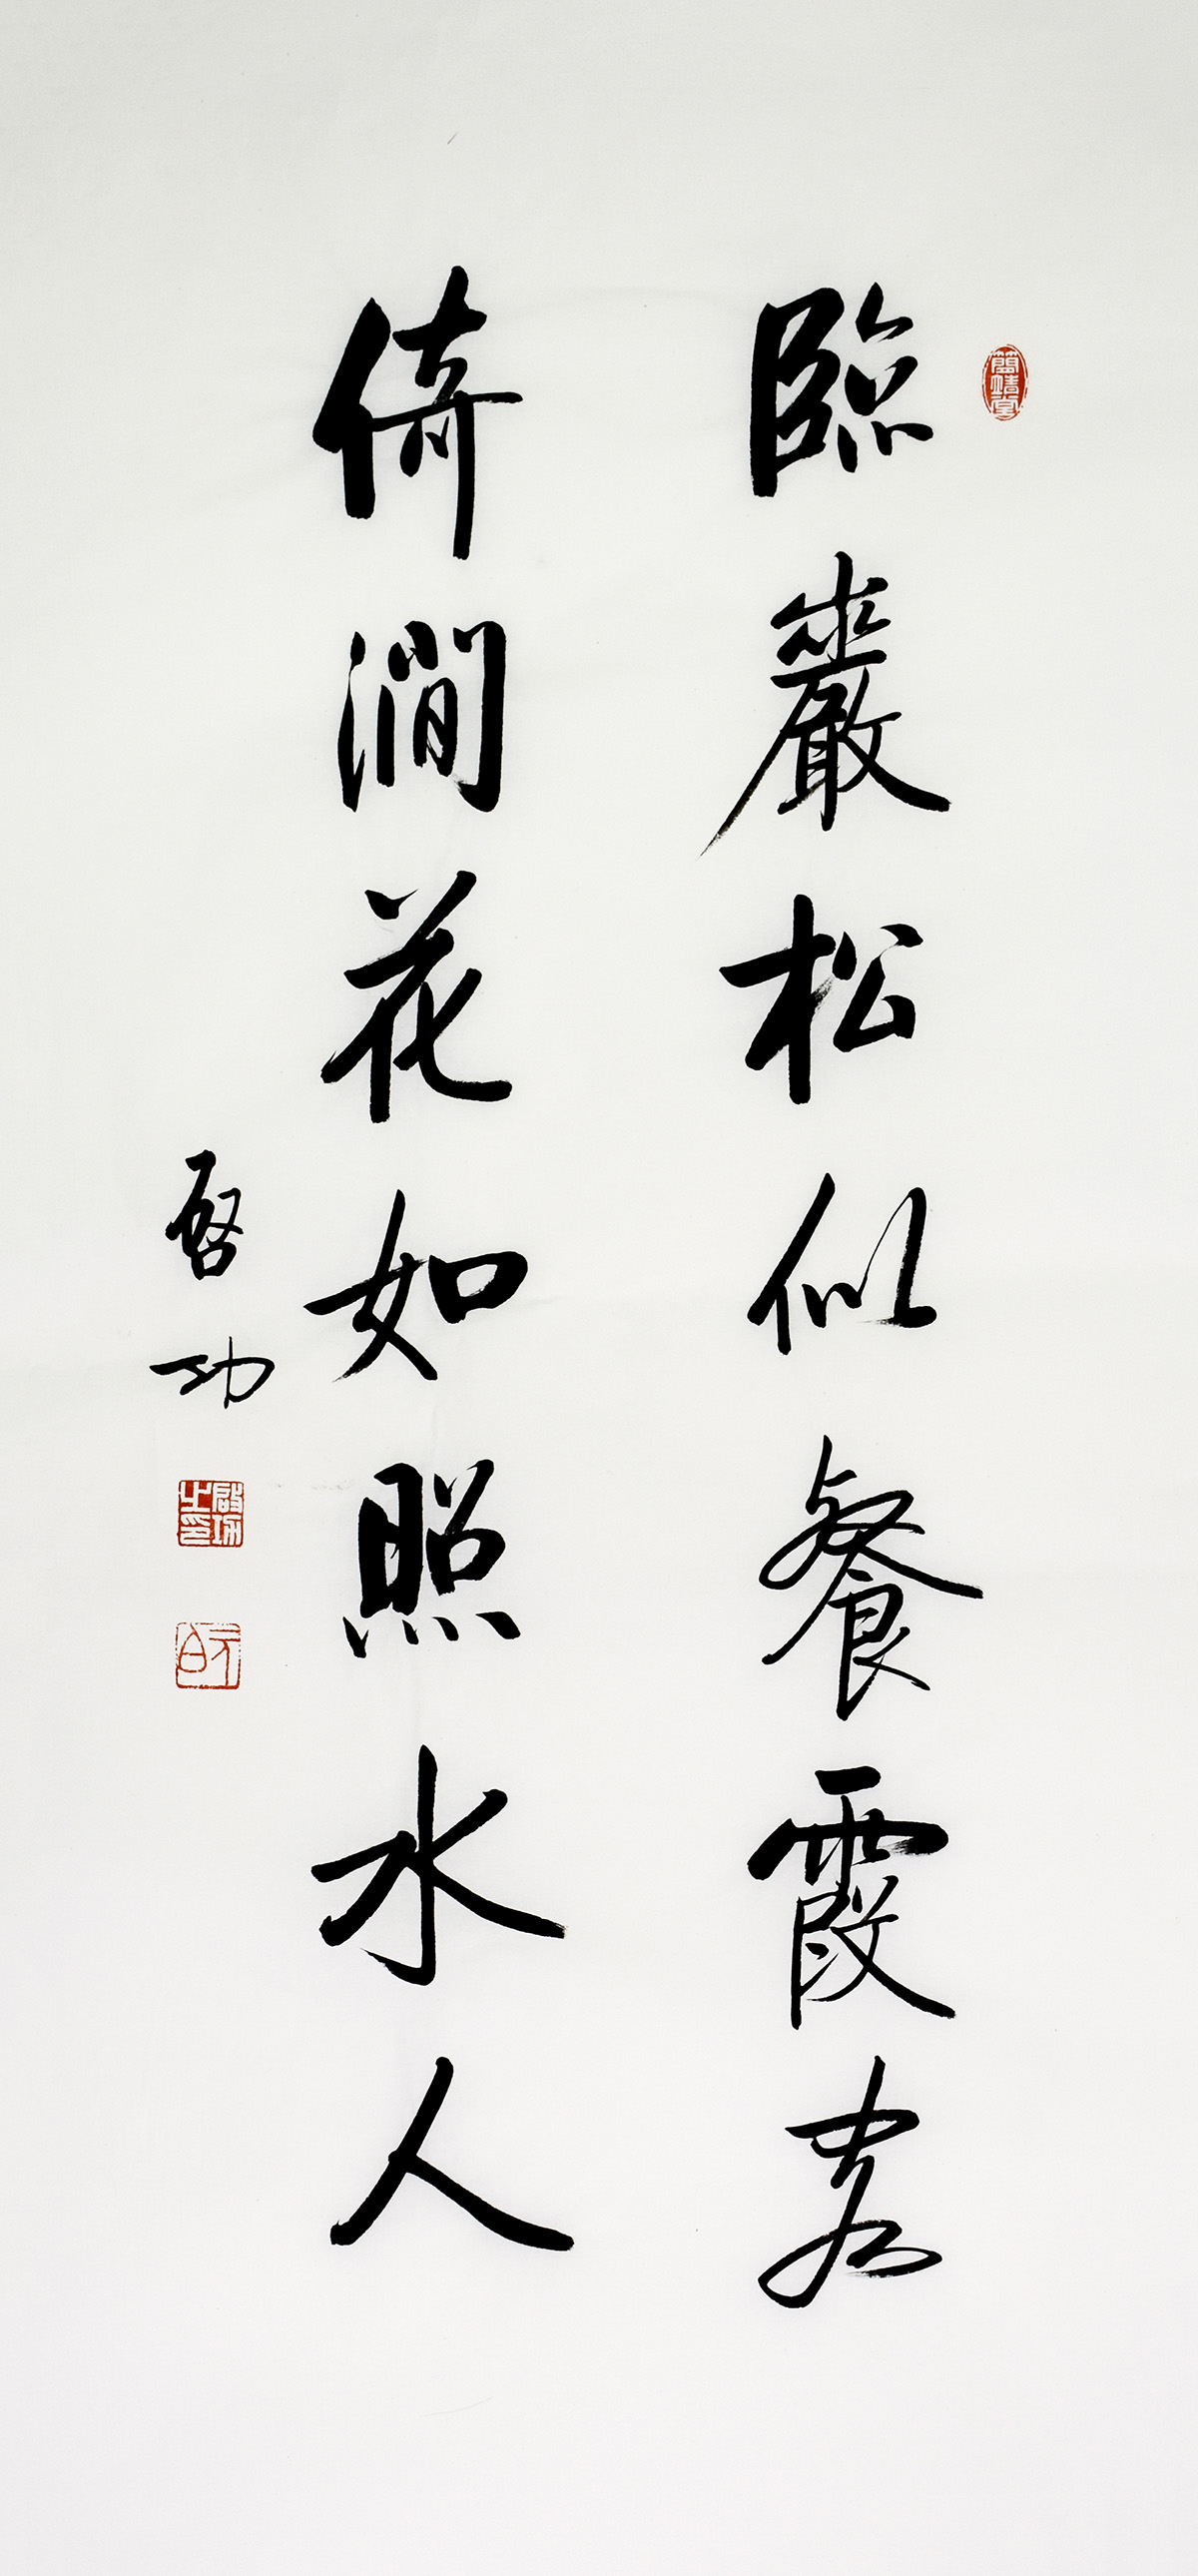 簡靖堂
臨巖松似餐霞客
倚澗花如照水人
啓功
啓功之印
元白